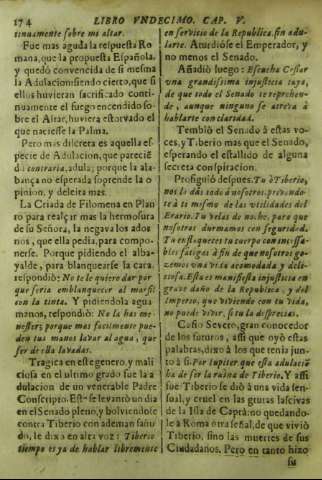 174 LIBRO VNDECIMO. CAP. V.
tinuamente sobre mi altar.
Fue mas aguda la respuesta Ro
mana, que la propuesta Española,
y quedó convencida de si mesma
la Adulacion; siendo cierto, que si
ellos huvieran sacrificado conti-
nuamente el fuego encendido so-
bre el Altar, huviera estorvado el
que naciesse la Palma.
Pero mas discreta es aquella es-
pecie de Adulacion, que parecié
dō contraria, adula; porque la ala-
bança no esperada sorprende la o
pinion, y deleita mas.
La Criada de Filomena en Plau
ro para realçar mas la hermosura
de su Señora, la negava los ador
nos, que ella pedia, para compo-
nerse. Porque pidiendo el alba-
yalde, para blanquearse la cara,
respondiò: No le quiero dar por
que seria emblanquecer al marfil
con la tinta. Y pidiendola agua
manos, respondiò: No la has me-
nester; porque mas facilmente pue-
den tus manos lavar al agua, que
ser de ella lavadas.
Tragica en este genero, y mali
ciosa en el ultimo grado fue la a
dulacion de un venerable Padre
Conscripto. Este se levantò un dia
en el Senado pleno, y bolviendose
contra Tiberio con ademan sañu
do, le dixo en alta voz: Tiberio
tiempo es ya de hablar libremente
en servicio de la Republica, sin adu-
larte. Aturdiòse el Emperador, y
no menos el Senado.
Añadiò luego: Escucha Cesar
una grandissima injusticia tuya,
de que todo el Senado te reprehen-
de, aunque ninguno se atreva à
hablarte con claridad.
Temblò el Senado à estas vo-
ces, y Tiberio mas que el Senado,
esperando el estallido de alguna
secreta conspiracion.
Prosiguiò despues. Tu ò Tiberio,
nos lo dàs todo à nosotros, privando-
te à ti mesmo de las utilidades del
Erario. Tu velas de noche, paro que
nosotros durmamos con seguridad.
Tu enflaqueces tu cuerpo con incessa-
bles fatigas à fin de que nosotros go-
zemos una vida acomodada y deli-
ciosa. Esta es manifiesta injusticia en
grave daño de la Republica, y del
Imperio, que viviendo con tu vida,
no puede vivir, si tu la desprecias.
Casio Severo, gran conocedor
de los futuros, assi que oyò estas
palabras, dixo à los que tenia jun-
to à si. Par Iupiter que esta adulacio
ha de ser la ruina de Tiberio. Y assi
fue Tiberio se diò à una vida sen-
sual, y cruel en las grutas lascivas
de la Isla de Capra: no quedando-
le à Roma otra señal, de que vivió
Tiberio, sino las muertes de sus
Ciudadanos. Pero en tanto hizo
su